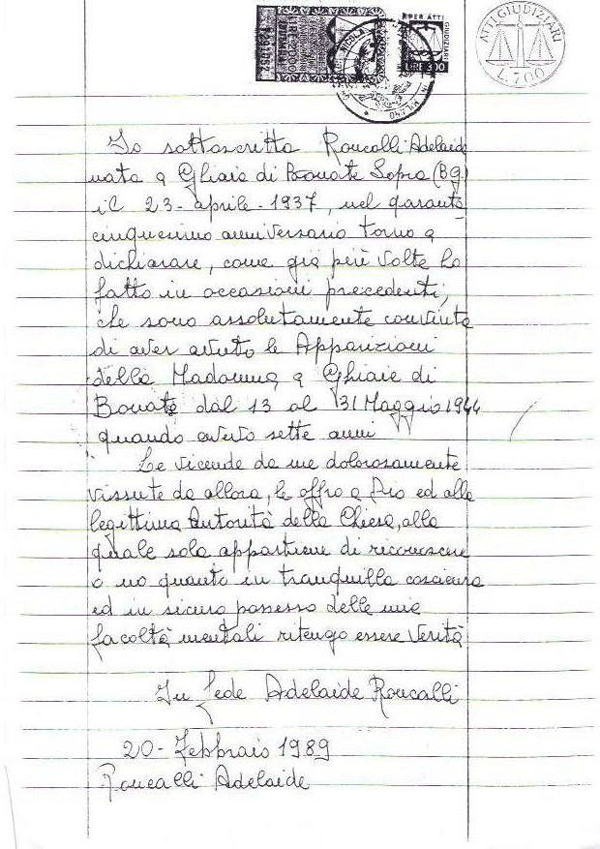 ATTI GIUDIZIARI
L.700
PER ATTI
GIUDIZIARI
LIRE 300
Io sottoscritta Roncalli Adelaide
nata a Ghiaie di Bonate Sopra (BG)
il 23-aprile-1937, nel quaranta
cinquesimo anniversario torno a
dichiarare, come già più volte ho
fatto in occasioni precedenti,
che sono assolutamente convinta
di aver avuto le Apparizioni
della Madonna a Ghiaie di
Bonate dal 13 al 31 Maggio 1944
quando avevo sette anni
Le vicende da me dolorosamente
vissute da allora, le offro a Dio ed alla
legittima Autorità della Chiesa, alla
quale sola appartiene di riconoscere
o no quanto in tranquilla coscienza
ed in sicuro possesso delle mie
facoltà mentali ritengo essere Verità
In fede Adelaide Roncalli
20-Febbraio 1989
Roncalli Adelaide